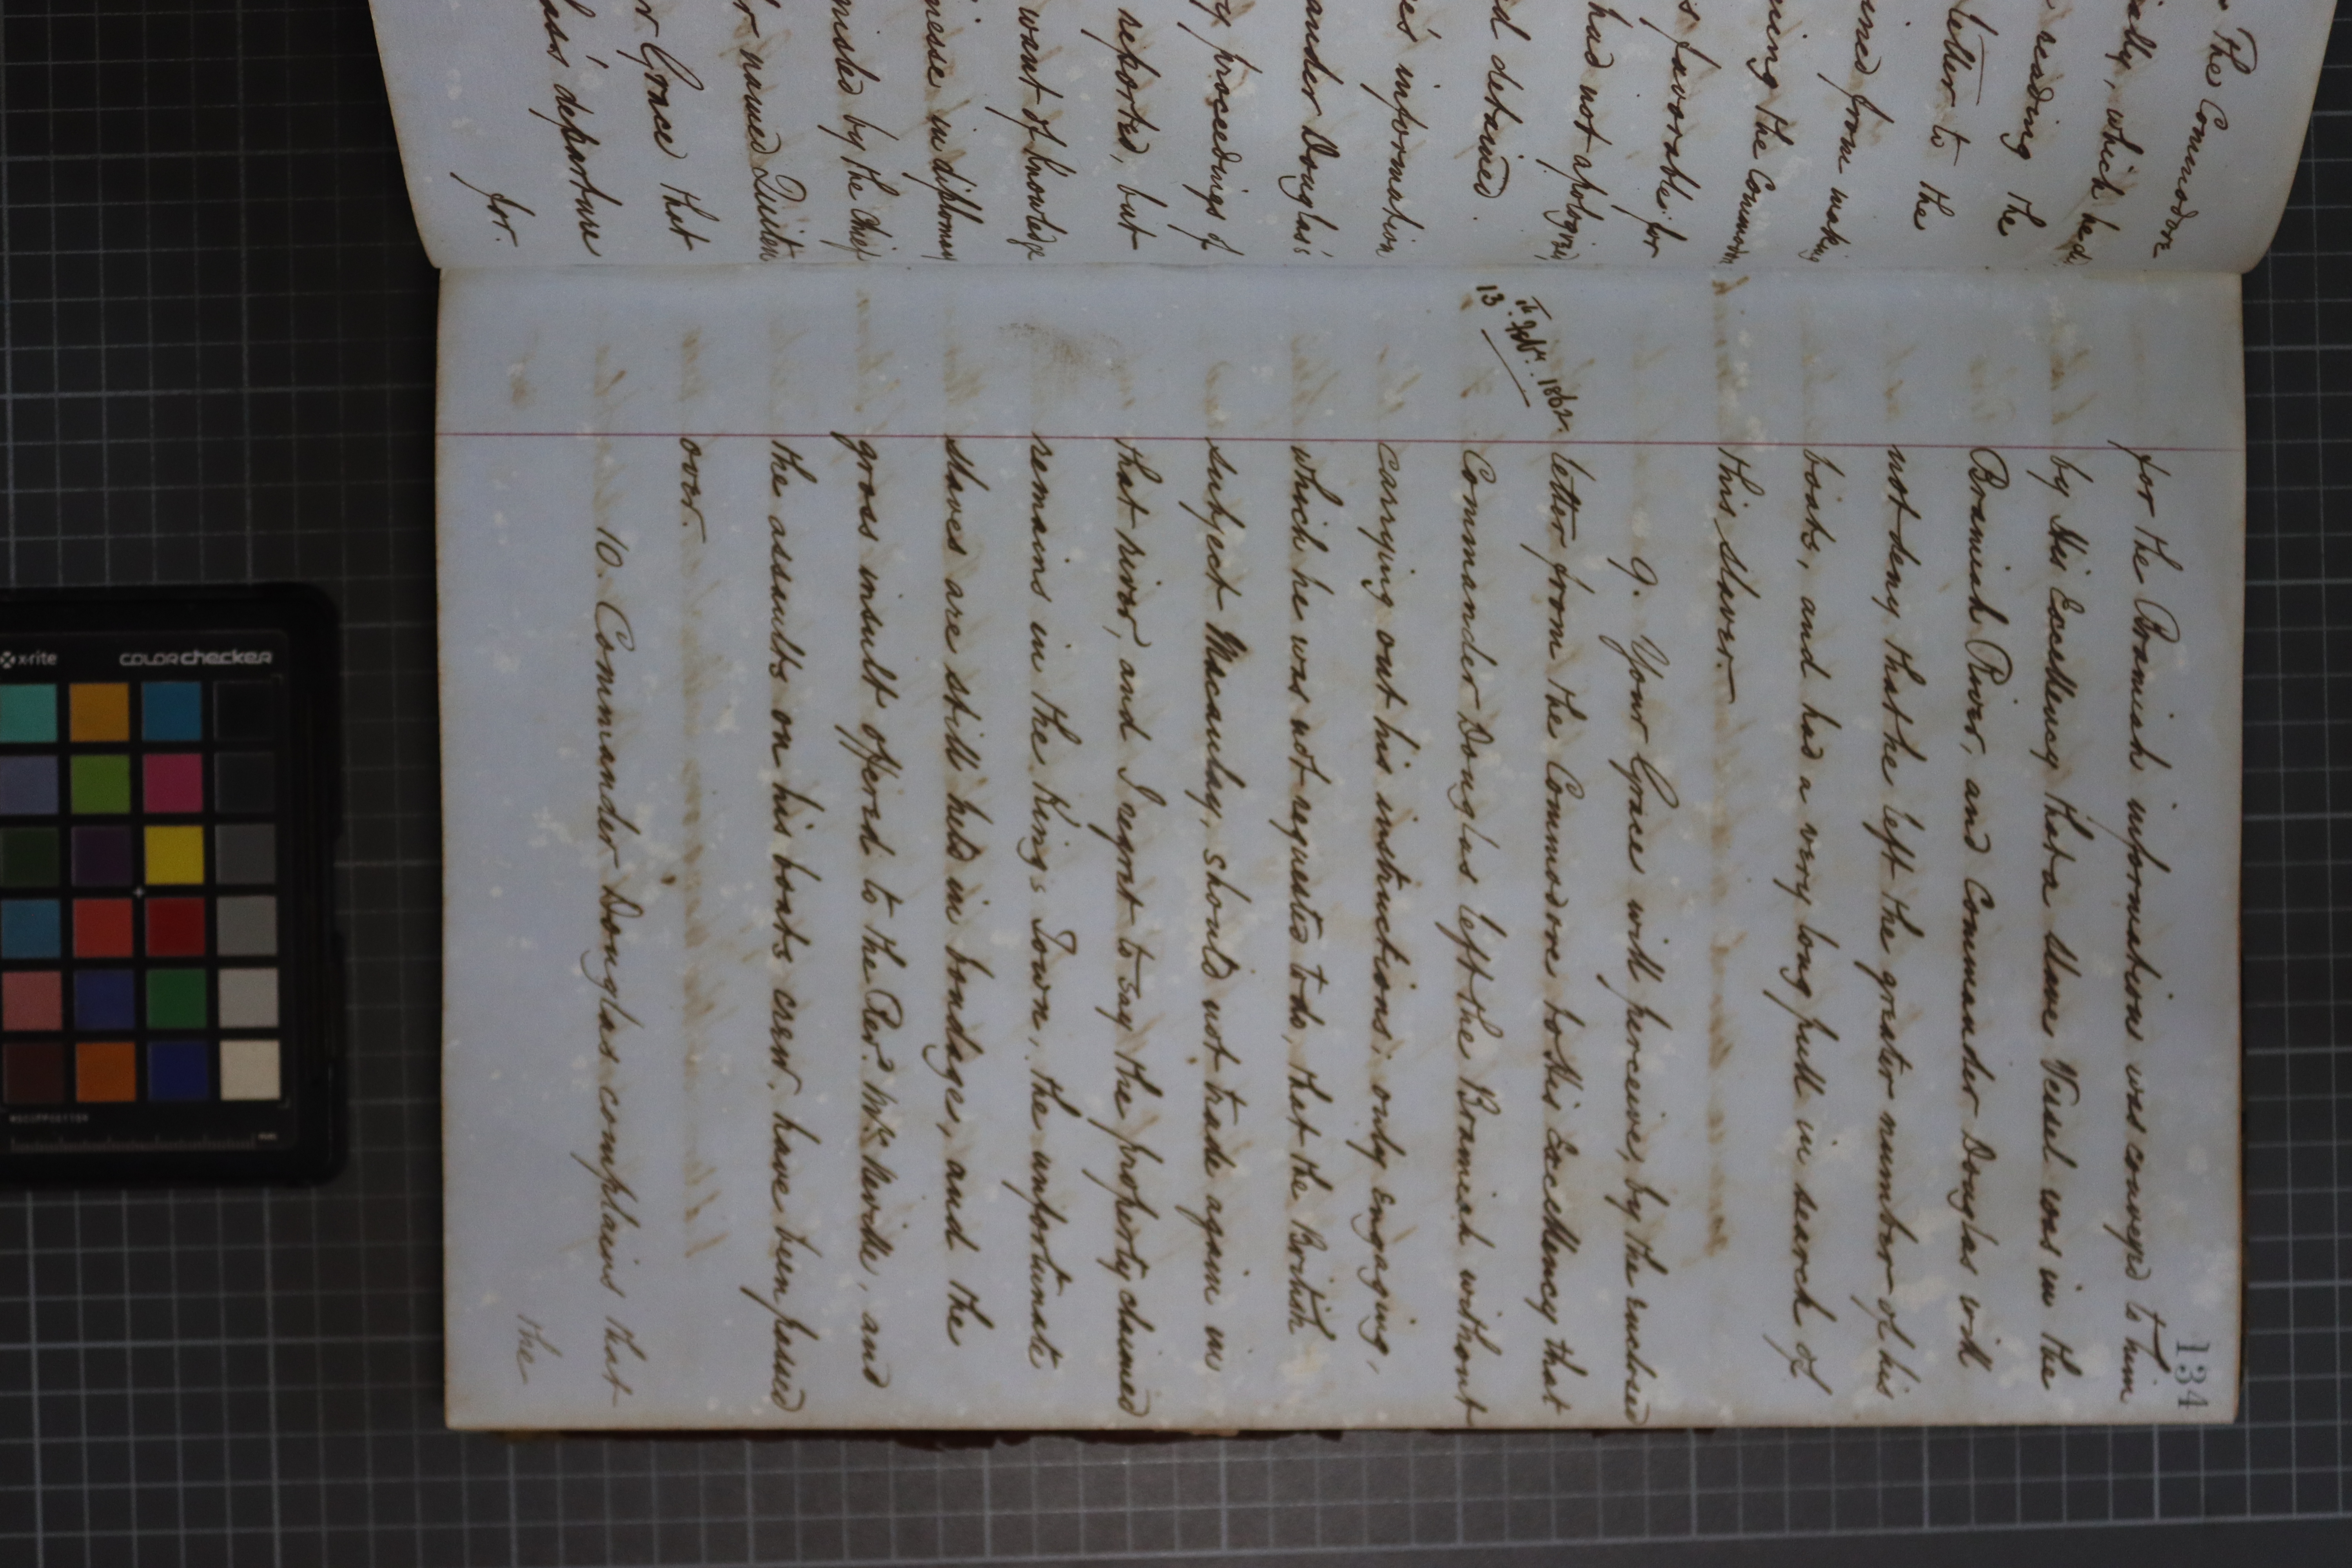 The Commodore
iedly, which he di
reading the
letter to the
ined from making
ning the Commo
s favorable for
had not apologized
id detained.
re's information
ander Douglas's
ry proceedings of
reported, but
want of knowledge
nesse in diplomacy
nished by the Chief
r named Quilem
r Grace that
las's departure
for.
134
for the Bramiah information was conveyed to him
by His Excellency that a Slave Vessel was in the
Bramiah River, and Commander Douglas will
not deny that he left the greater number of his
boats, and had a very long pull in search of
this slaver.
9. Your Grace will perceive, by the enclosed
13 Feby. 1862.
letter from the Commodore to His Excellency that
Commander Douglas left the Bramiah without
carrying out his instructions; only engaging,
which he was not requested to do, that the British
subject Macaulay, should not trade again in
that river, and I regret to say the property claimed
remains in the King's Town, the unfortunate
slaves are still held in bondage, and the
gross insult offered to the Revd. Mr. Neville, and
the assaults on his boats crew, have been passed
over.
10. Commander Douglas complains that
the
COLORchecker
x-rite